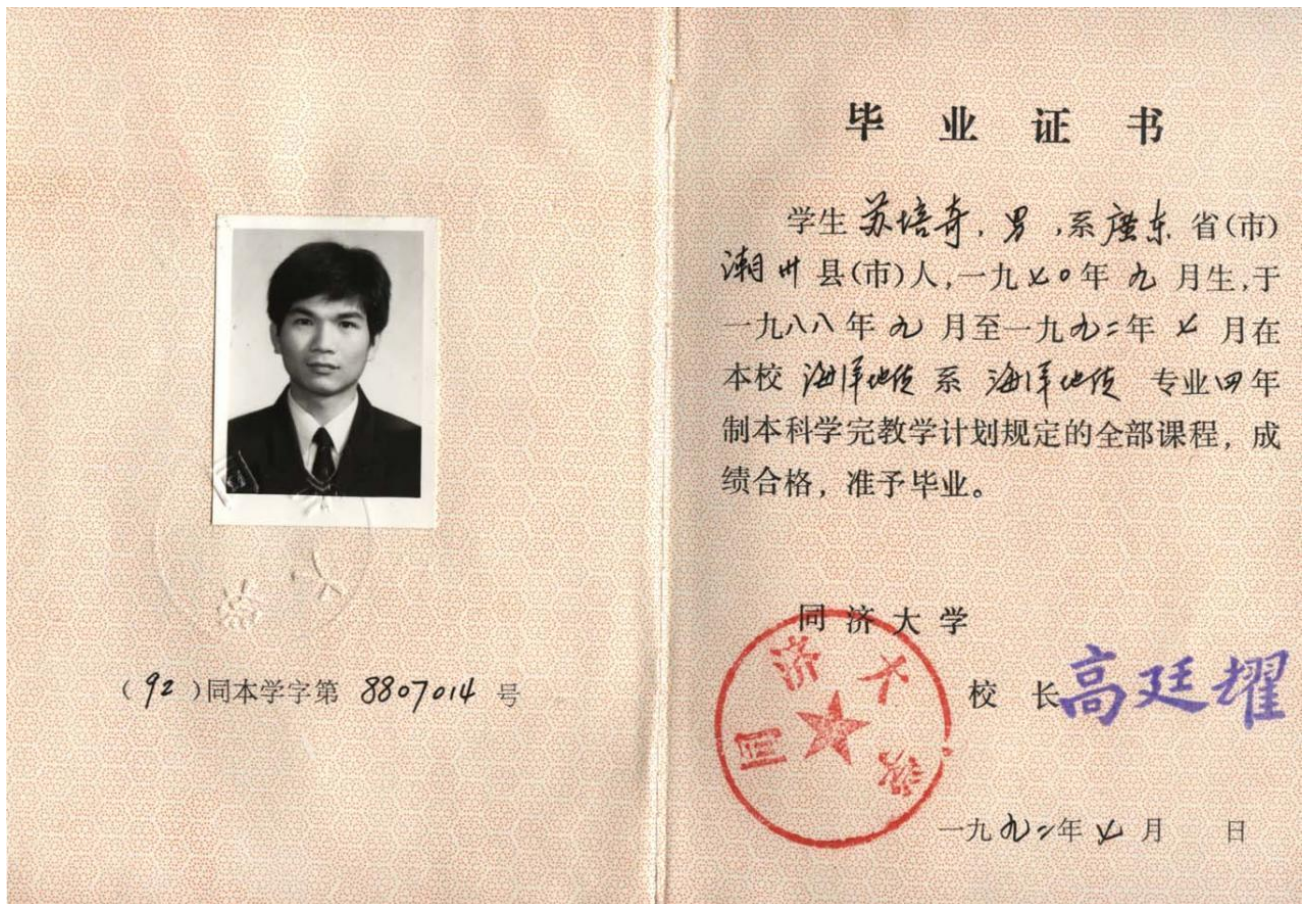 同济大学
(92)同本学字第 8807014 号
毕业证书
学生 苏培奇,男,系广东省(市)
潮州县(市)人,一九七〇年九月生,于
一九八八年九月至一九九二年七月在
本校 海洋地质 系 海洋地质 专业四年
制本科学完教学计划规定的全部课程,成
绩合格,准予毕业。
同济大学
校长 高廷耀
同济大学
一九九二年七月 日